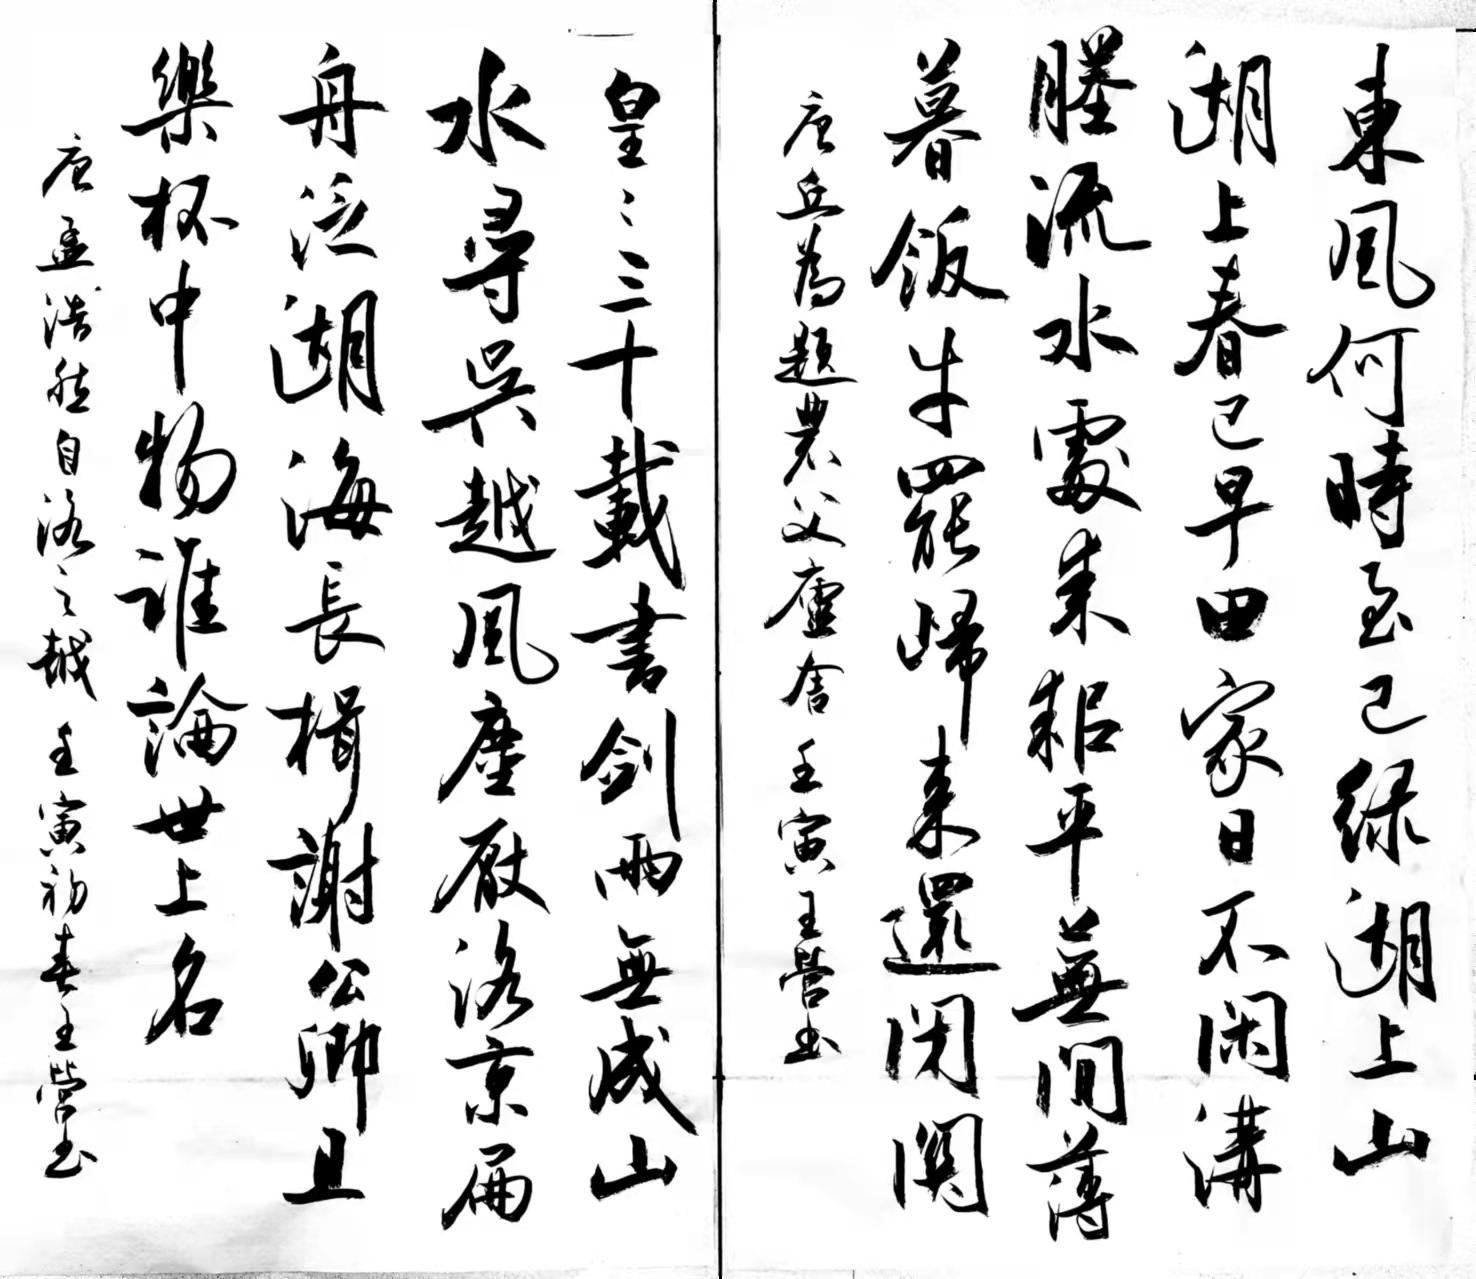 東風何時至已綠湖上山
湖上春已早田家日不閑溝
塍流水處耒耜平蕪間薄
暮飯牛罷歸來還閉關
唐丘為題農父廬舍壬寅王營書
皇〻三十載書劍兩無成山
水尋吳越風塵厭洛京扁
舟泛湖海長揖謝公卿且
樂杯中物誰論世上名
唐孟浩然自洛之越壬寅初春王營書